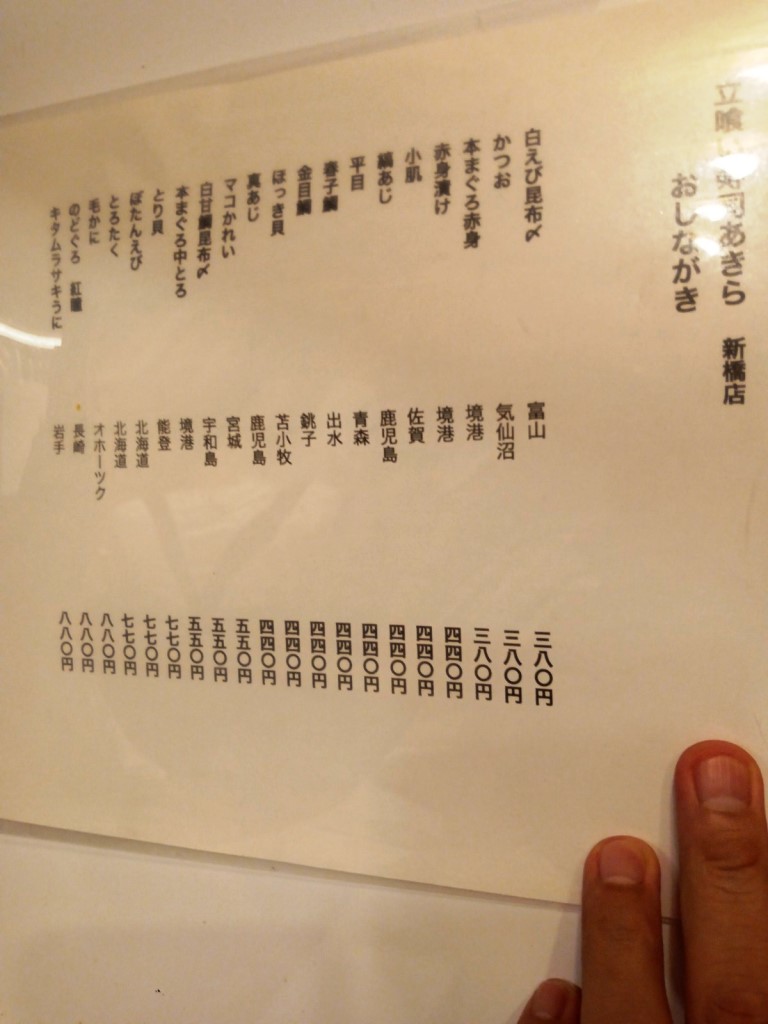 立喰い寿司あきら 新橋店
おしながき
白えび昆布〆 富山 三八〇円
かつお 気仙沼 三八〇円
本まぐろ赤身 境港 三八〇円
赤身漬け 境港 四四〇円
小肌 佐賀 四四〇円
縞あじ 鹿児島 四四〇円
平目 青森 四四〇円
春子鯛 出水 四四〇円
金目鯛 銚子 四四〇円
ほっき貝 苫小牧 四四〇円
真あじ 鹿児島 四四〇円
マコかれい 宮城 五五〇円
白甘鯛昆布〆 宇和島 五五〇円
本まぐろ中とろ 境港 五五〇円
とり貝 能登 七七〇円
ぼたんえび 北海道 七七〇円
とろたく 北海道 七七〇円
毛かに オホーツク 八八〇円
のどぐろ 紅瞳 長崎 八八〇円
キタムラサキうに 岩手 八八〇円